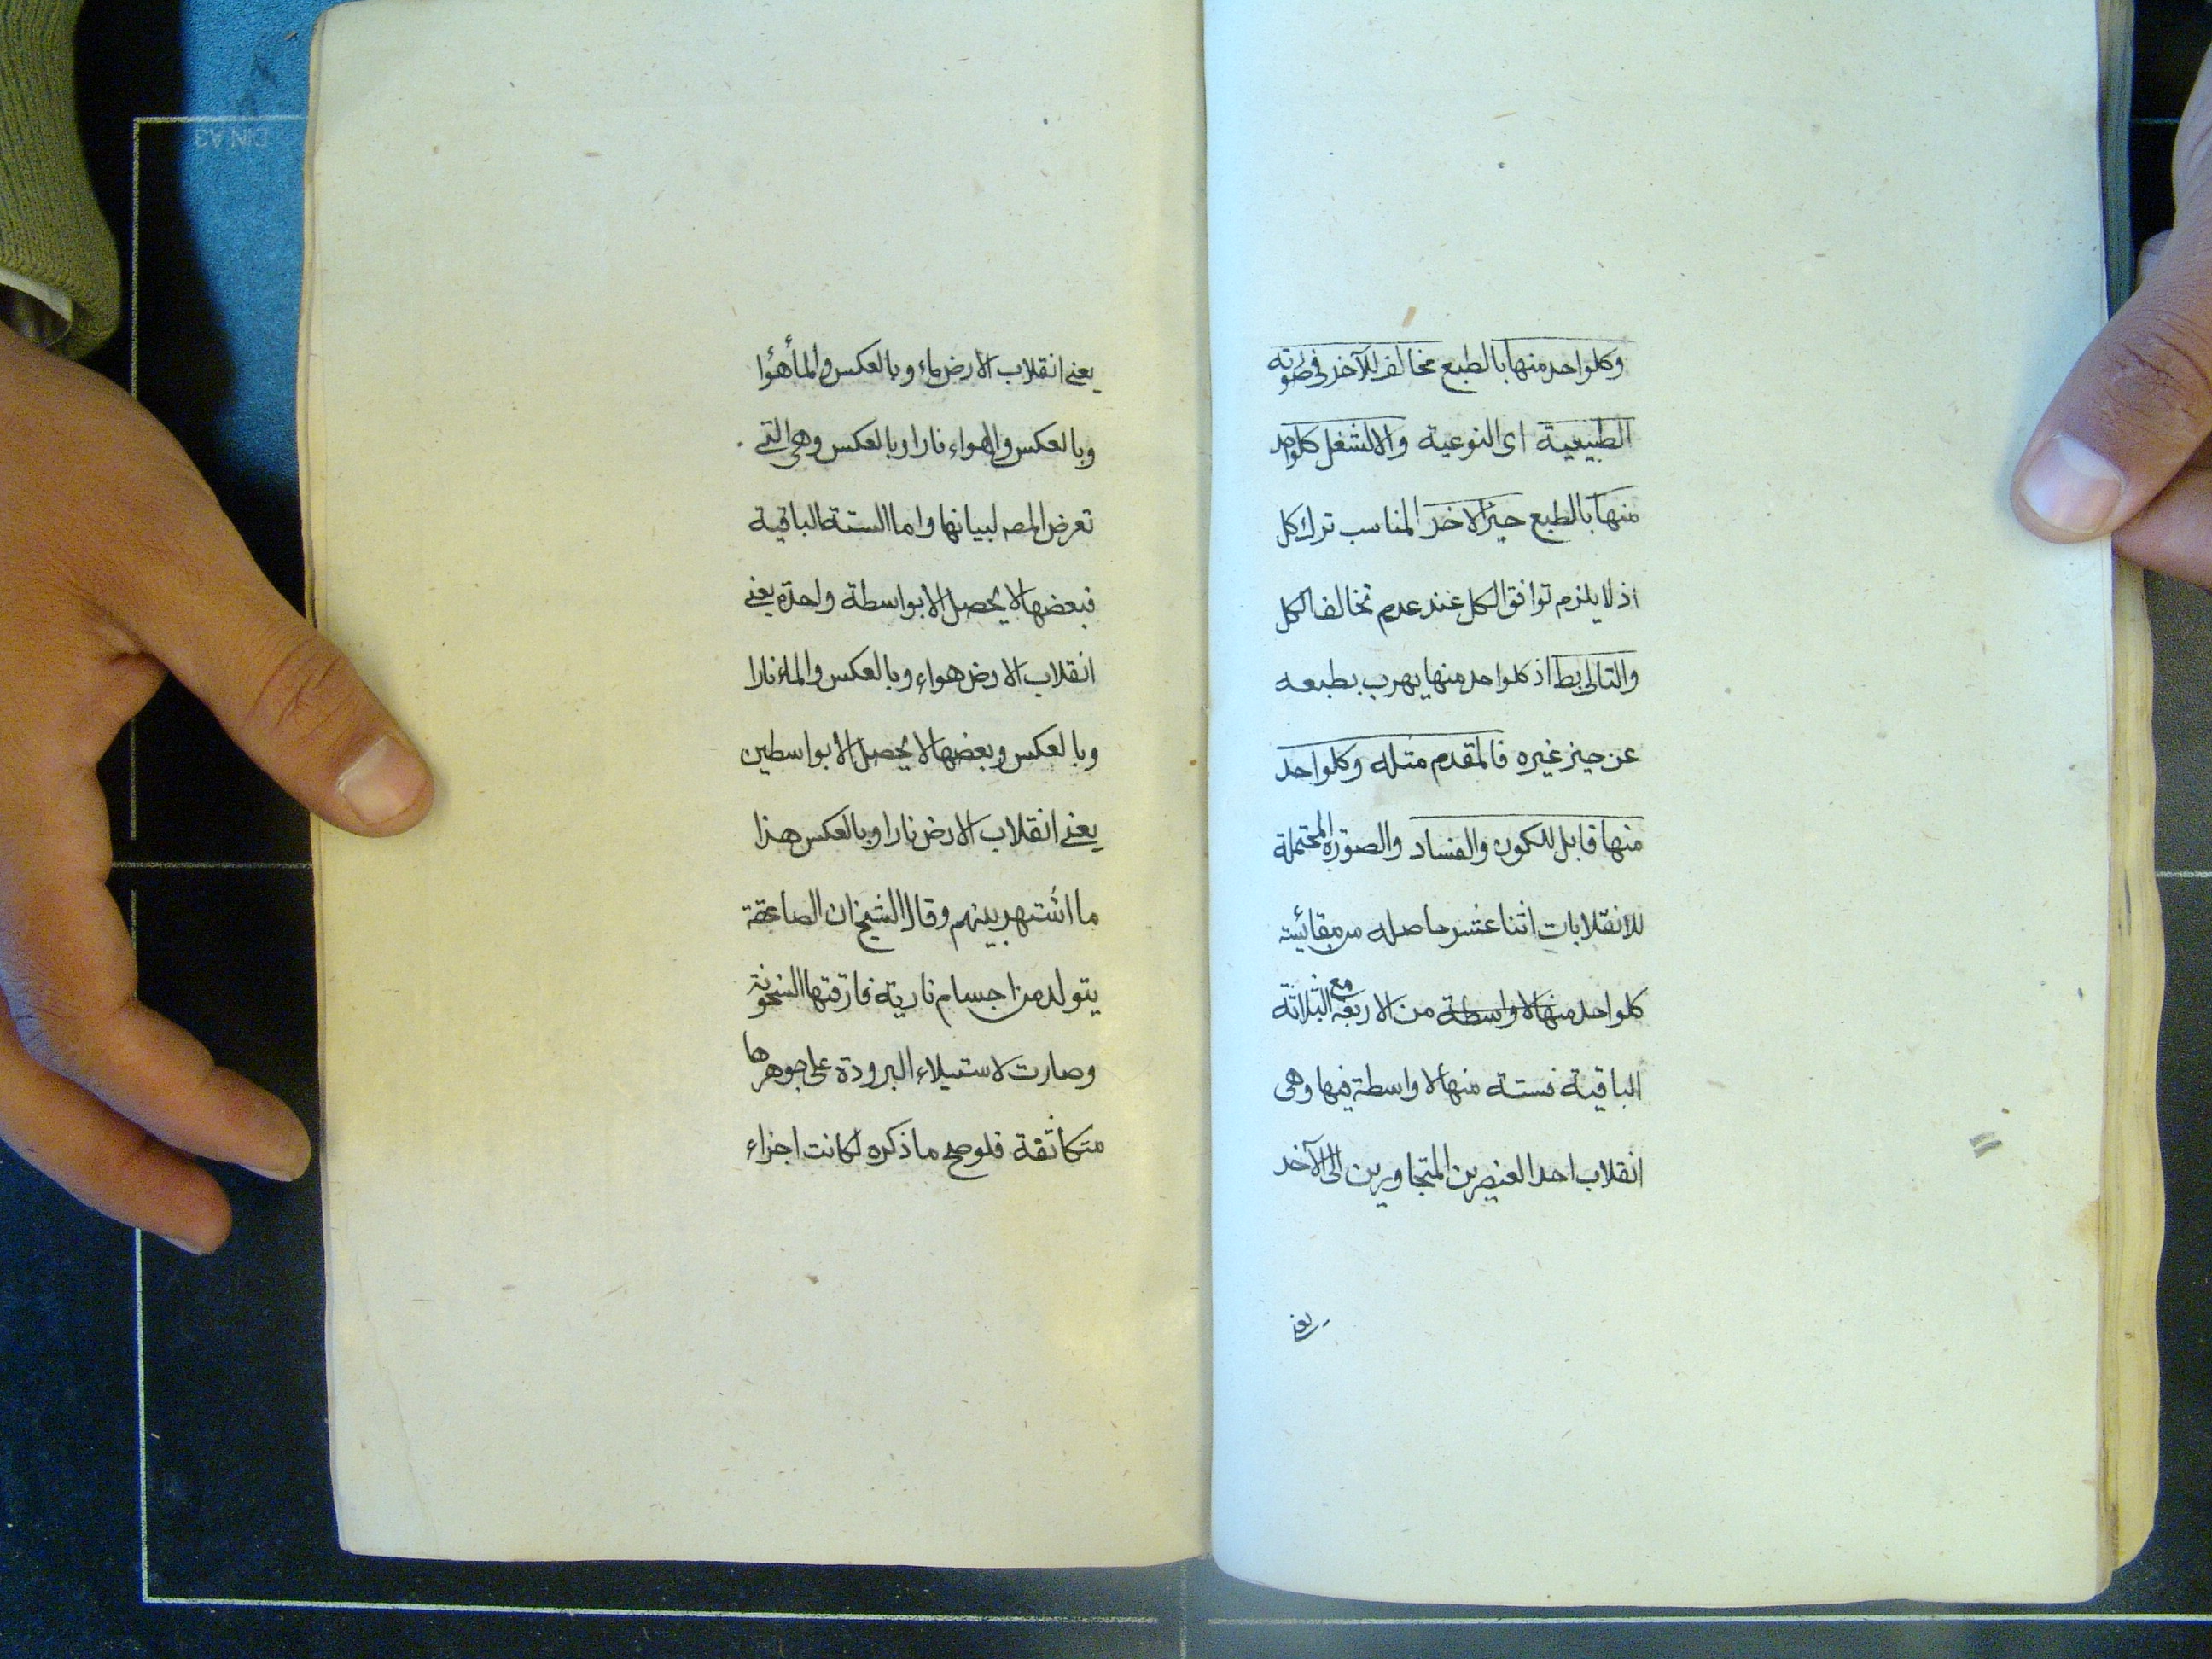 وكلواحد منها بالطبع مخالف للآخر فى صورته
الطبيعية اى النوعية والالشغل كلواحد
منها بالطبع حيز الاخر المناسب ترك كل
اذ لا يلزم توافق الكل عند عدم تخالف الكل
والتالى بط اذ كلواحد منها يهرب بطبعه
عن حيز غيره فالمقدم مثله وكلواحد
منها قابل للكون والفساد والصورة المحتملة
للانقلابات اثنا عشر حاصله من مقائسة
كلواحد منها لا واسطة من الاربعة مع الثلاثة
الباقية فستة منها لا واسطة فيها وهى
انقلاب احد العنصرين المتجاورين الى الآخر
يعنے
يعنے انقلاب الارض ماء وبالعكس والمأ هؤا
وبالعكس والهواء نارا وبالعكس وهى التے
تعرض المصہ لبيانها واما الستة الباقية
فبعضها لا يحصل الا بواسطة واحدة يعنے
انقلاب الارض هواء وبالعكس والماء نارا
وبالعكس وبعضها لا يحصل الا بواسطين
يعنے انقلاب الارض نارا وبالعكس هذا
ما اشتهر بينهم وقال الشيخ ان الصاعقة
يتولد من اجسام نارية فارقتها السخونة
وصارت لاستيلاء البرودة على جوهرها
متكاثفة فلو صح ما ذكره لكانت اجزاء